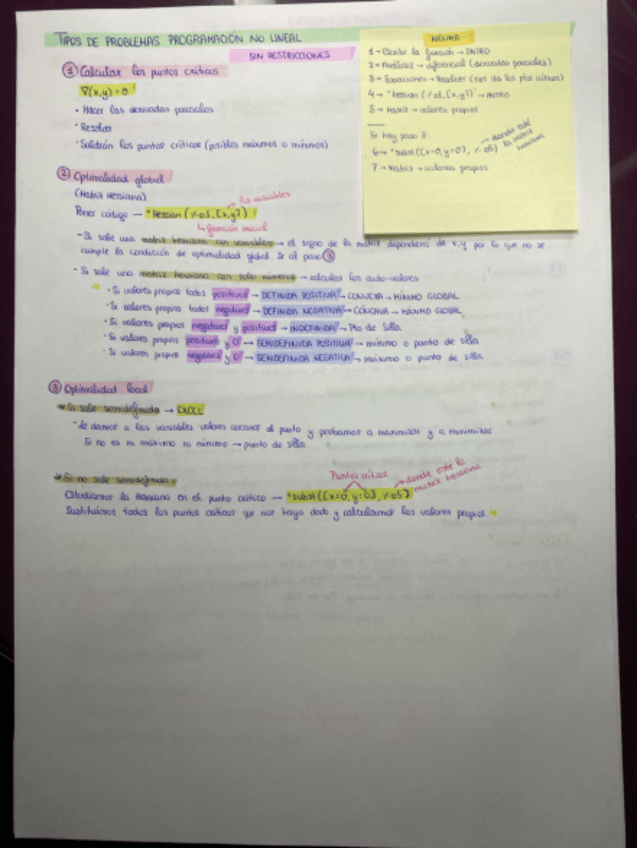 TIPOS DE PROBLEMAS PROGRAMACIÓN NO LINEAL
SIN RESTRICCIONES
① Calcular los puntos críticos
∇(x,y) = 0
• Hacer las derivadas parciales
• Resolver
• Saldrán los puntos críticos (posibles máximos o mínimos)
MÁXIMA
1 → Escribir la función → INTRO
2 → Análisis → diferencial (derivadas parciales)
3 → Ecuaciones → Resolver (nos da los ptos críticos)
4 → "Hessian (%o1, [x,y])" → INTRO
5 → Matriz → valores propios
Si hay paso 3:
6 → "subst([x=0, y=0], %o5) → donde esté la matriz hessiana
7 → Matriz → valores propios
② Optimalidad global
(Matriz Hessiana)
Poner código → "Hessian (%o1, [x,y])
las variables
función inicial
- Si sale una matriz hessiana con variables → el signo de la matriz dependerá de x,y por lo que no se
cumple la condición de optimalidad global. Ir al paso ③
- Si sale una matriz hessiana con solo números → calcular los auto-valores
• Si valores propios todos positivos → DEFINIDA POSITIVA → CONVEXA → MÍNIMO GLOBAL
• Si valores propios todos negativos → DEFINIDA NEGATIVA → CÓNCAVA → MÁXIMO GLOBAL
• Si valores propios negativos y positivos → INDEFINIDA → Pto de silla
• Si valores propios positivos y 0 → SEMIDEFINIDA POSITIVA → mínimo o punto de silla
• Si valores propios negativos y 0 → SEMIDEFINIDA NEGATIVA → máximo o punto de silla
③ Optimalidad local
Si sale semidefinida → EXCEL
- Le damos a las variables valores cercanos al punto y probamos a maximizar y a minimizar
Si no es ni máximo ni mínimo → punto de silla
Si no sale semidefinida
Puntos críticos
donde esté la matriz hessiana
Estudiamos la Hessiana en el punto crítico → "subst([x=0, y=0], %o5)
Sustituimos todos los puntos críticos que nos haya dado y calculamos los valores propios